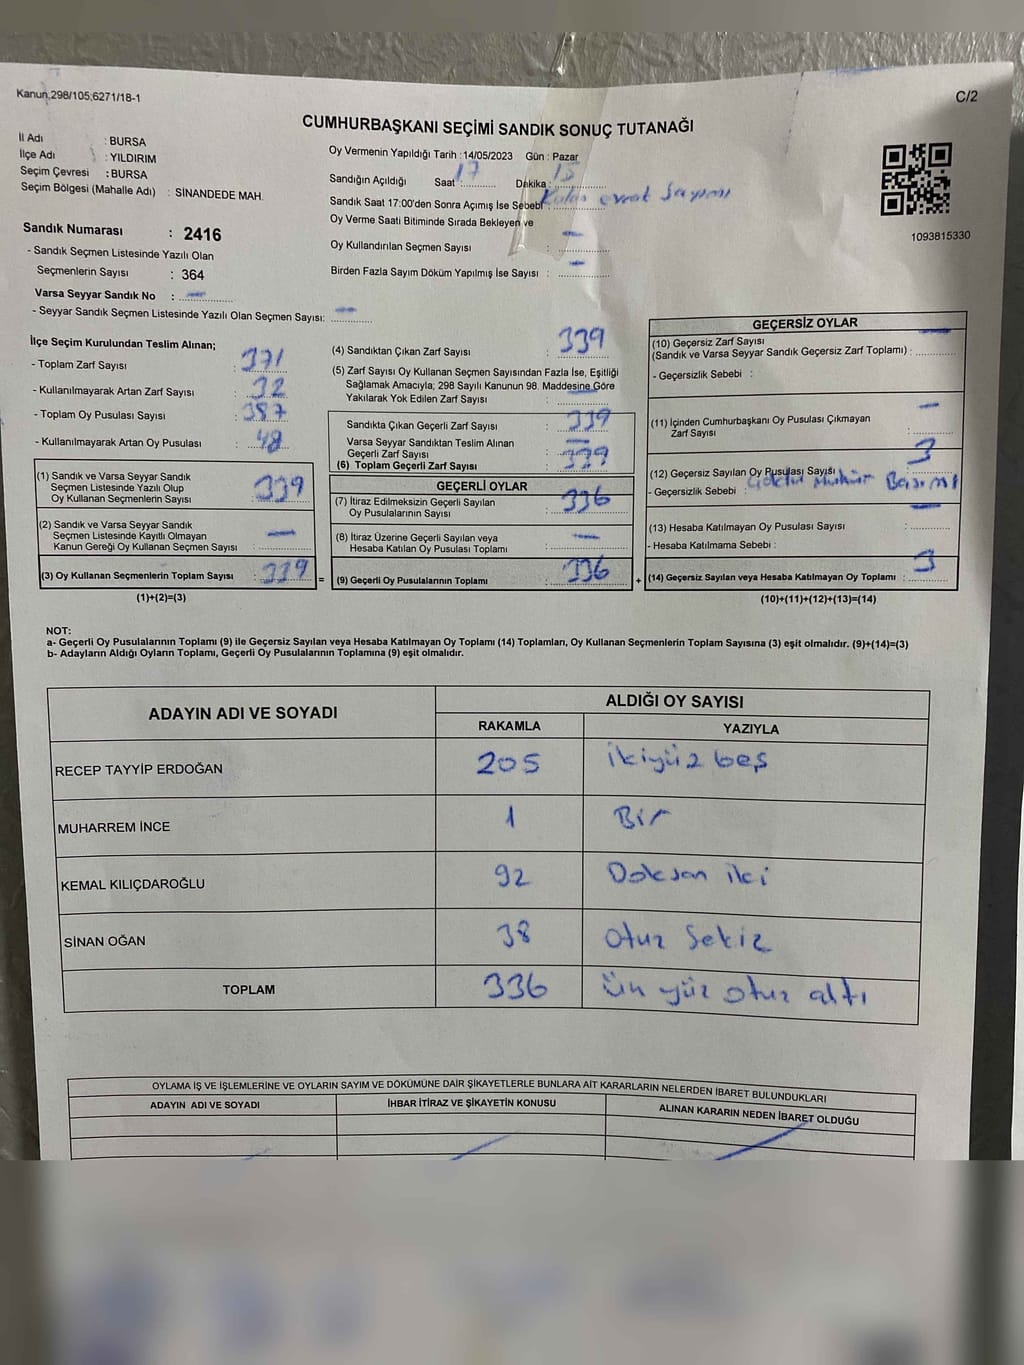 Kanun;298/105;6271/18-1
C/2
CUMHURBAŞKANI SEÇİMİ SANDIK SONUÇ TUTANAĞI
İl Adı : BURSA
İlçe Adı : YILDIRIM
Seçim Çevresi : BURSA
Seçim Bölgesi (Mahalle Adı) : SİNANDEDE MAH.
Sandık Numarası : 2416
- Sandık Seçmen Listesinde Yazılı Olan
Seçmenlerin Sayısı : 364
Varsa Seyyar Sandık No : —
- Seyyar Sandık Seçmen Listesinde Yazılı Olan Seçmen Sayısı: —
Oy Vermenin Yapıldığı Tarih : 14/05/2023 Gün : Pazar
Sandığın Açıldığı Saat : 17 Dakika : 15
Sandık Saat 17:00'den Sonra Açımış İse Sebebi : evrat Sayımı
Oy Verme Saati Bitiminde Sırada Bekleyen ve
Oy Kullandırılan Seçmen Sayısı : —
Birden Fazla Sayım Döküm Yapılmış İse Sayısı : —
1093815330
İlçe Seçim Kurulundan Teslim Alınan;
- Toplam Zarf Sayısı : 371
- Kullanılmayarak Artan Zarf Sayısı : 32
- Toplam Oy Pusulası Sayısı : 387
- Kullanılmayarak Artan Oy Pusulası : 48
(1) Sandık ve Varsa Seyyar Sandık
Seçmen Listesinde Yazılı Olup
Oy Kullanan Seçmenlerin Sayısı : 339
(2) Sandık ve Varsa Seyyar Sandık
Seçmen Listesinde Kayıtlı Olmayan
Kanun Gereği Oy Kullanan Seçmen Sayısı : —
(3) Oy Kullanan Seçmenlerin Toplam Sayısı : 339
(1)+(2)=(3)
(4) Sandıktan Çıkan Zarf Sayısı : 339
(5) Zarf Sayısı Oy Kullanan Seçmen Sayısından Fazla İse, Eşitliği
Sağlamak Amacıyla; 298 Sayılı Kanunun 98. Maddesine Göre
Yakılarak Yok Edilen Zarf Sayısı : —
Sandıkta Çıkan Geçerli Zarf Sayısı : 339
Varsa Seyyar Sandıktan Teslim Alınan
Geçerli Zarf Sayısı : —
(6) Toplam Geçerli Zarf Sayısı : 339
GEÇERLİ OYLAR
(7) İtiraz Edilmeksizin Geçerli Sayılan
Oy Pusulalarının Sayısı : 336
(8) İtiraz Üzerine Geçerli Sayılan veya
Hesaba Katılan Oy Pusulası Toplamı : —
= (9) Geçerli Oy Pusulalarının Toplamı : 336
GEÇERSİZ OYLAR
(10) Geçersiz Zarf Sayısı
(Sandık ve Varsa Seyyar Sandık Geçersiz Zarf Toplamı) : —
- Geçersizlik Sebebi :
(11) İçinden Cumhurbaşkanı Oy Pusulası Çıkmayan
Zarf Sayısı : —
(12) Geçersiz Sayılan Oy Pusulası Sayısı : 3
- Geçersizlik Sebebi : Mühür Basımı
(13) Hesaba Katılmayan Oy Pusulası Sayısı : —
- Hesaba Katılmama Sebebi :
+ (14) Geçersiz Sayılan veya Hesaba Katılmayan Oy Toplamı : 3
(10)+(11)+(12)+(13)=(14)
NOT:
a- Geçerli Oy Pusulalarının Toplamı (9) ile Geçersiz Sayılan veya Hesaba Katılmayan Oy Toplamı (14) Toplamları, Oy Kullanan Seçmenlerin Toplam Sayısına (3) eşit olmalıdır. (9)+(14)=(3)
b- Adayların Aldığı Oyların Toplamı, Geçerli Oy Pusulalarının Toplamına (9) eşit olmalıdır.
ADAYIN ADI VE SOYADI
ALDIĞI OY SAYISI
RAKAMLA YAZIYLA
RECEP TAYYİP ERDOĞAN 205 ikiyüz beş
MUHARREM İNCE 1 Bir
KEMAL KILIÇDAROĞLU 92 Doksan iki
SİNAN OĞAN 38 otuz Sekiz
TOPLAM 336 Ün yüz otuz altı
OYLAMA İŞ VE İŞLEMLERİNE VE OYLARIN SAYIM VE DÖKÜMÜNE DAİR ŞİKAYETLERLE BUNLARA AİT KARARLARIN NELERDEN İBARET BULUNDUKLARI
ADAYIN ADI VE SOYADI İHBAR İTİRAZ VE ŞİKAYETİN KONUSU ALINAN KARARIN NEDEN İBARET OLDUĞU